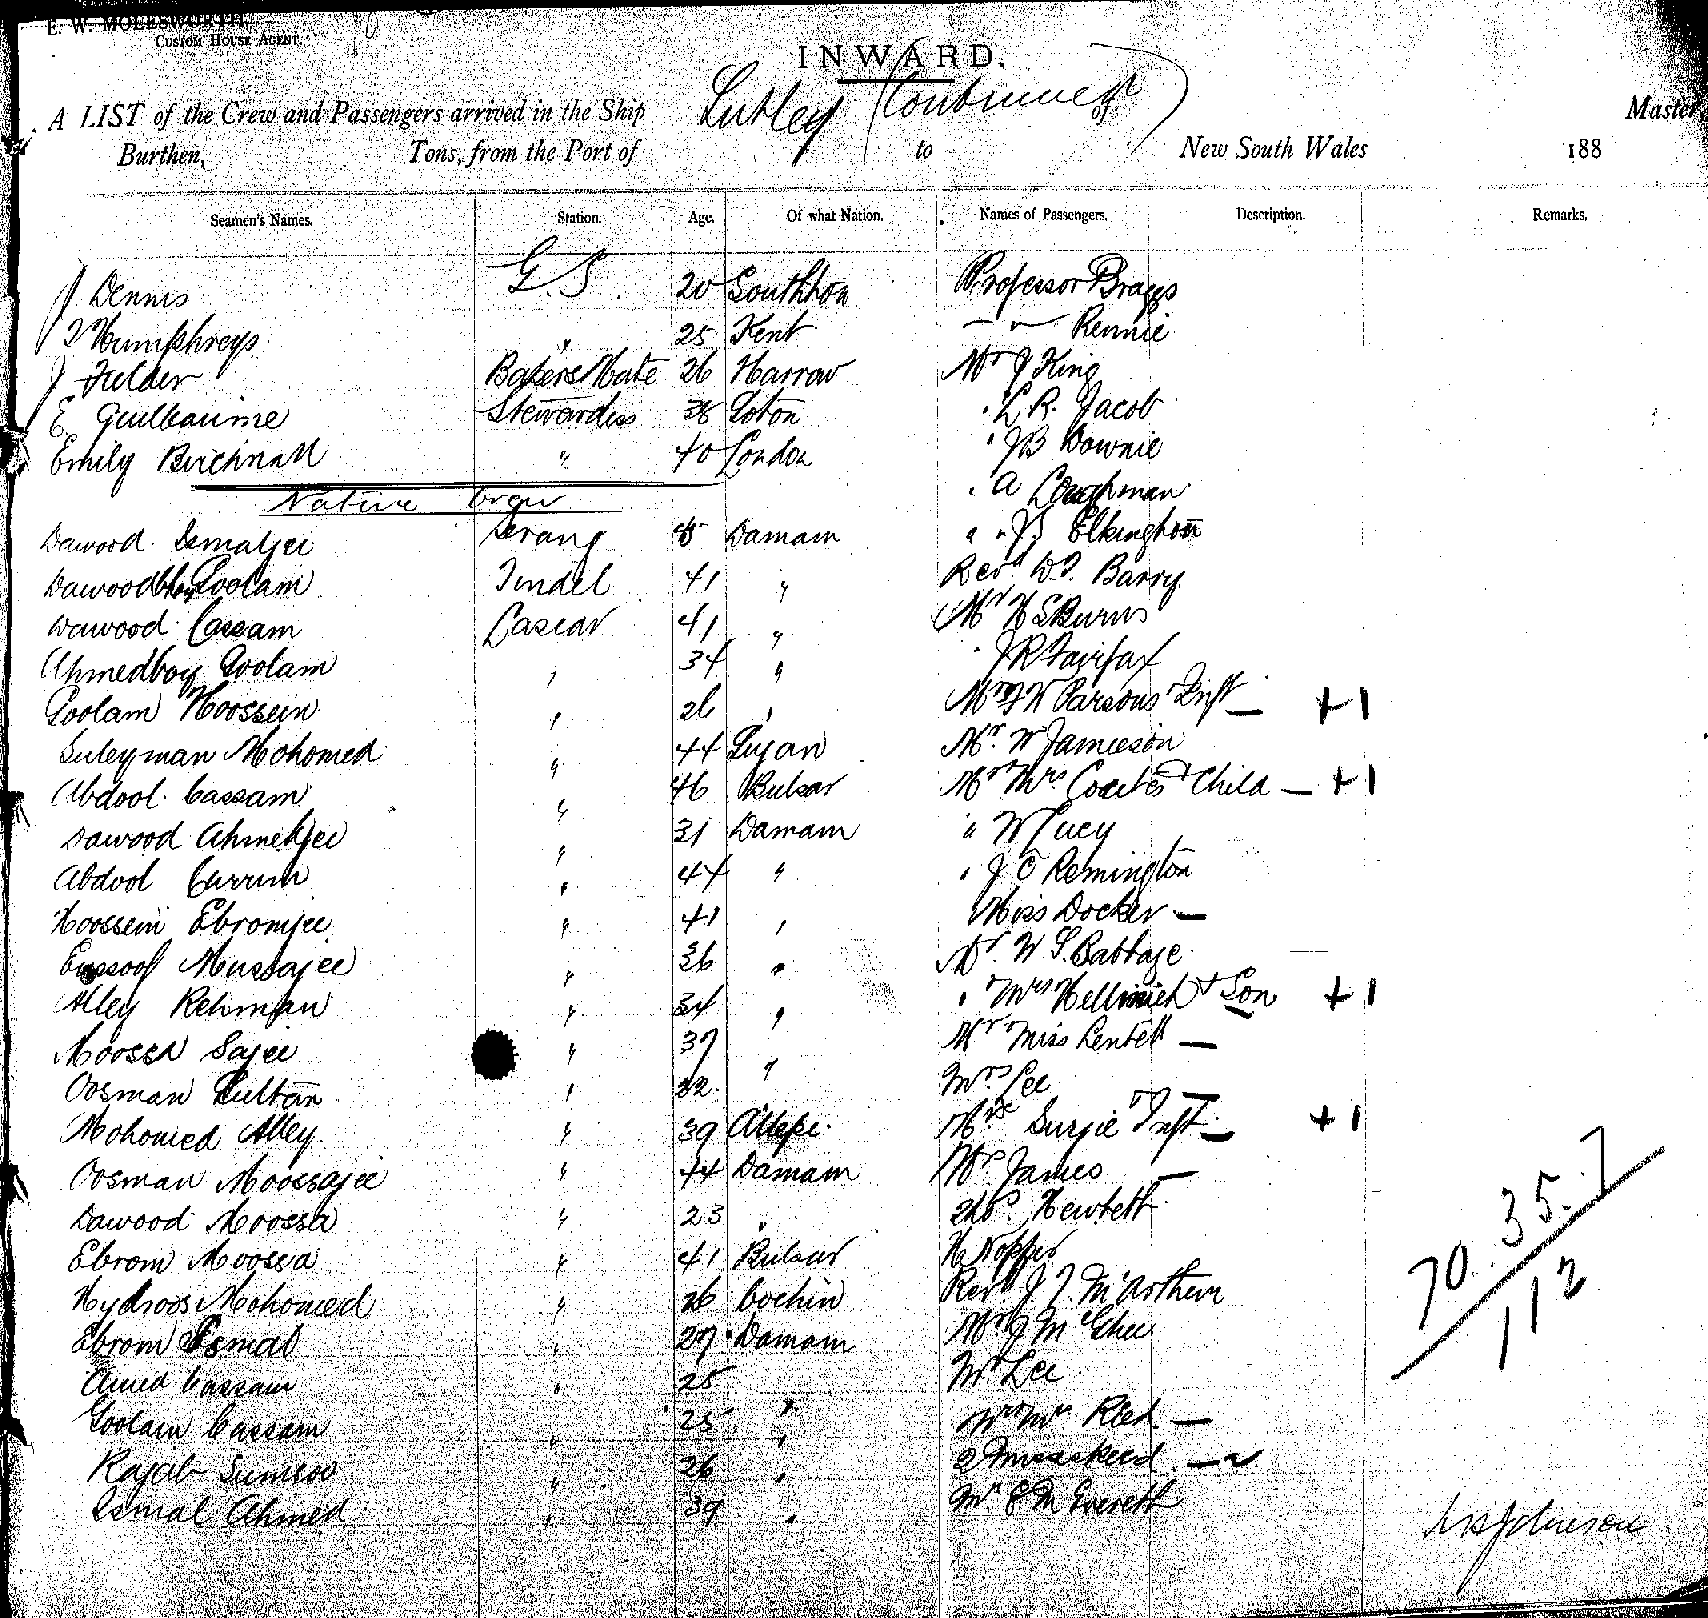 E. W. MOLESWORTH
CUSTOM HOUSE AGENT.
INWARD.
A LIST of the Crew and Passengers arrived in the Ship Sutley (Continued) of Master,
Burthen, Tons, from the Port of to New South Wales 188
Seamen's Names. Station. Age. Of what Nation. Names of Passengers. Description. Remarks.
J Dennis G. S. 20 Southton Professor Braggs
Humphreys " 25 Kent — " — Rennie
J Fielder Bakers Mate 26 Harrow Mr J King
E Guilbaume Stewardess 38 " L R. Jacob
Emily Birchnall " 40 London " J B Downie
Native Crew " A Coughman
Dawood Ismaljee Serang 45 Damam " " J S Elkington
Dawoodbhoy Goolam Tindel 41 " Revd D. Barry
Dawood Cassam Lascar 41 " Mr H S Burns
Ahmedboy Goolam " 34 " J R Fairfax
Goolam Hoossein " 26 " Mrs F W Parsons & Inft — +1
Suleyman Mohomed " 44 Mr. W Jamieson
Abdool Cassam " 46 Bulsar Mr Mrs Coates & Child — +1
Dawood Ahmedjee " 31 Damam " W Lucy
Abdool Currim " 44 " " J O Remington
Hoossein Ebromjee " 41 " Miss Docker —
Eussoof Mussajee " 36 " Mr. W S. Babbage
Alley Rehman " 34 " " Mrs & Son +1
Moossa Sajee " 37 " Mr Miss —
Oosman Sultan " 32 Mrs Lee —
Mohomed Alley " 39 Mrs & Inft — +1
Oosman Moossajee " 44 Damam Mrs James —
Dawood Moossa " 23 " Hewlett
Ebrom Moossa " 41 Bulsar
Hydroos Mohomed " 26 Cochin Revd J. McArthur
Ebrom Ismal " 27 Damam Mr J McGhee
Cassam " 25 " Mr Lee
Goolam Cassam " 25 " Mr Mrs Reed —
Rajab " 26 "
Ismal Ahmed " 39 " Mr E M Everett
70. 35. 7
112